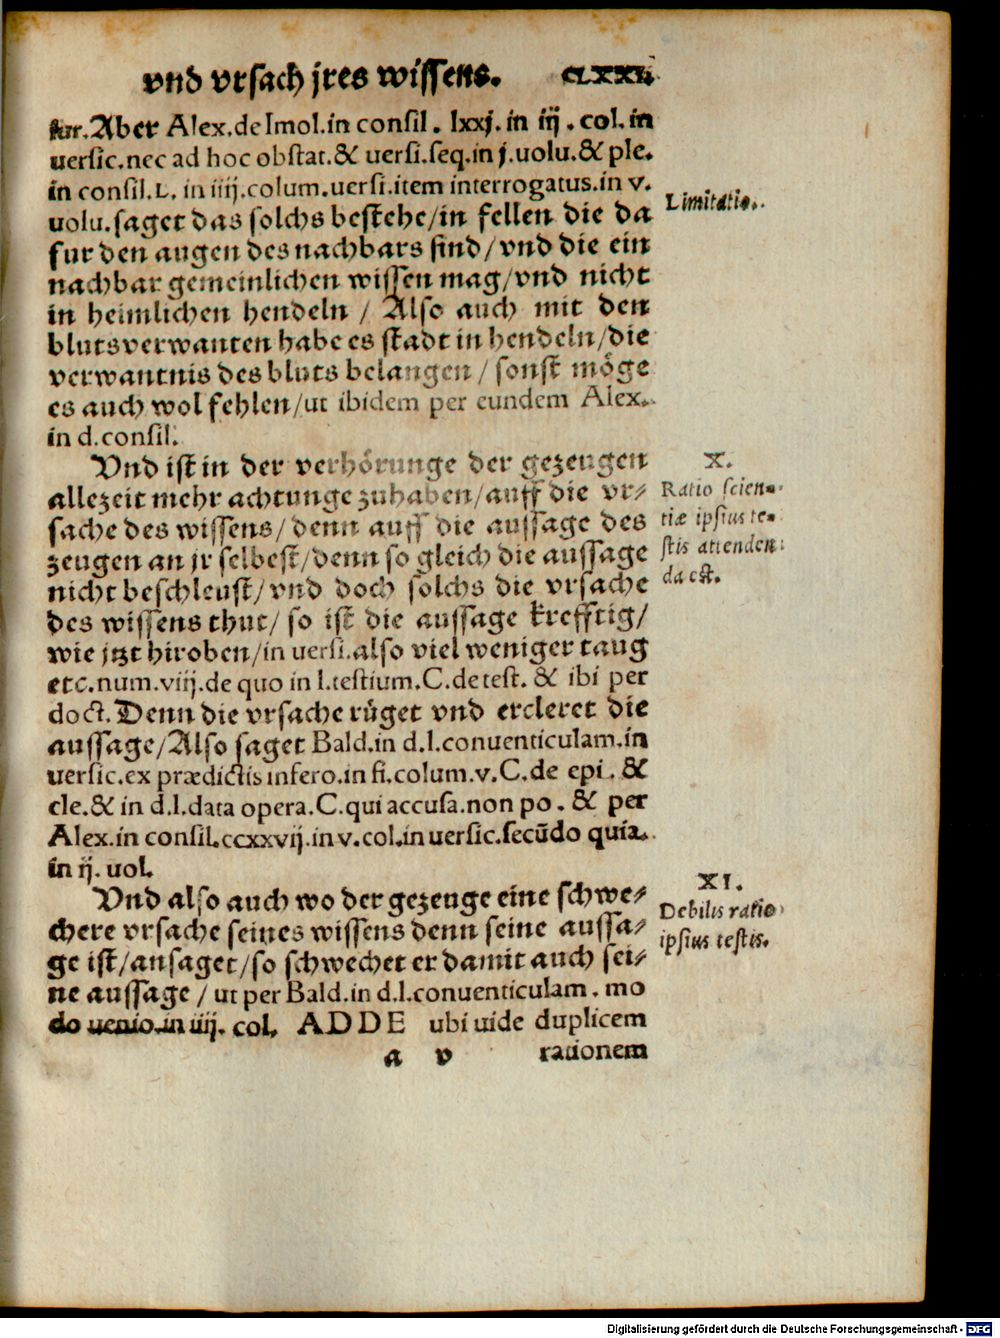 vnd vrsach jres wissens.
tur. Aber Alex. de Imol. in consil. lxxj. in iij. col. in
uersic. nec ad hoc obstat. & uersi. seq. in j. uolu. & ple.
in consil. L. in iiij. colum. uersi. item interrogatus. in v.
Limitatio.
uolu. saget das solchs bestehe/in fellen die da
fur den augen des nachbars sind/vnd die ein
nachbar gemeinlichen wissen mag/vnd nicht
in heimlichen hendeln / Also auch mit den
blutsverwanten habe es stadt in hendeln/die
verwantnis des bluts belangen / sonst möge
es auch wol fehlen/ut ibidem per eundem Alex.
in d. consil.
Vnd ist in der verhörunge der gezeugen
X.
allezeit mehr achtunge zuhaben/auff die vr⸗
Ratio scien-
sache des wissens/ denn auff die aussage des
tiæ ipsius te-
zeugen an jr selbest/denn so gleich die aussage
stis attenden
nicht beschleust/vnd doch solchs die vrsache
da est.
des wissens thut/ so ist die aussage krefftig/
wie jtzt hiroben/in uersi. also viel weniger taug
etc. num. viij. de quo in l. testium. C. de test. & ibi per
doct. Denn die vrsache rüget vnd ercleret die
aussage/Also saget Bald. in d. l. conuenticulam. in
uersic. ex prædictis infero. in fi. colum. v. C. de epi. &
cle. & in d. l. data opera. C. qui accusa. non po. & per
Alex. in consil. ccxxvij. in v. col. in uersic. secūdo quia.
in ij. uol.
Vnd also auch wo der gezeuge eine schwe⸗
XI.
chere vrsache seines wissens denn seine aussa⸗
Debilis ratio
ge ist/ansaget/so schwechet er damit auch sei⸗
ipsius testis.
ne aussage / ut per Bald. in d. l. conuenticulam. mo
do uenio. in iiij. col. ADDE ubi uide duplicem
a v rationem
Digitalisierung gefördert durch die Deutsche Forschungsgemeinschaft - DFG